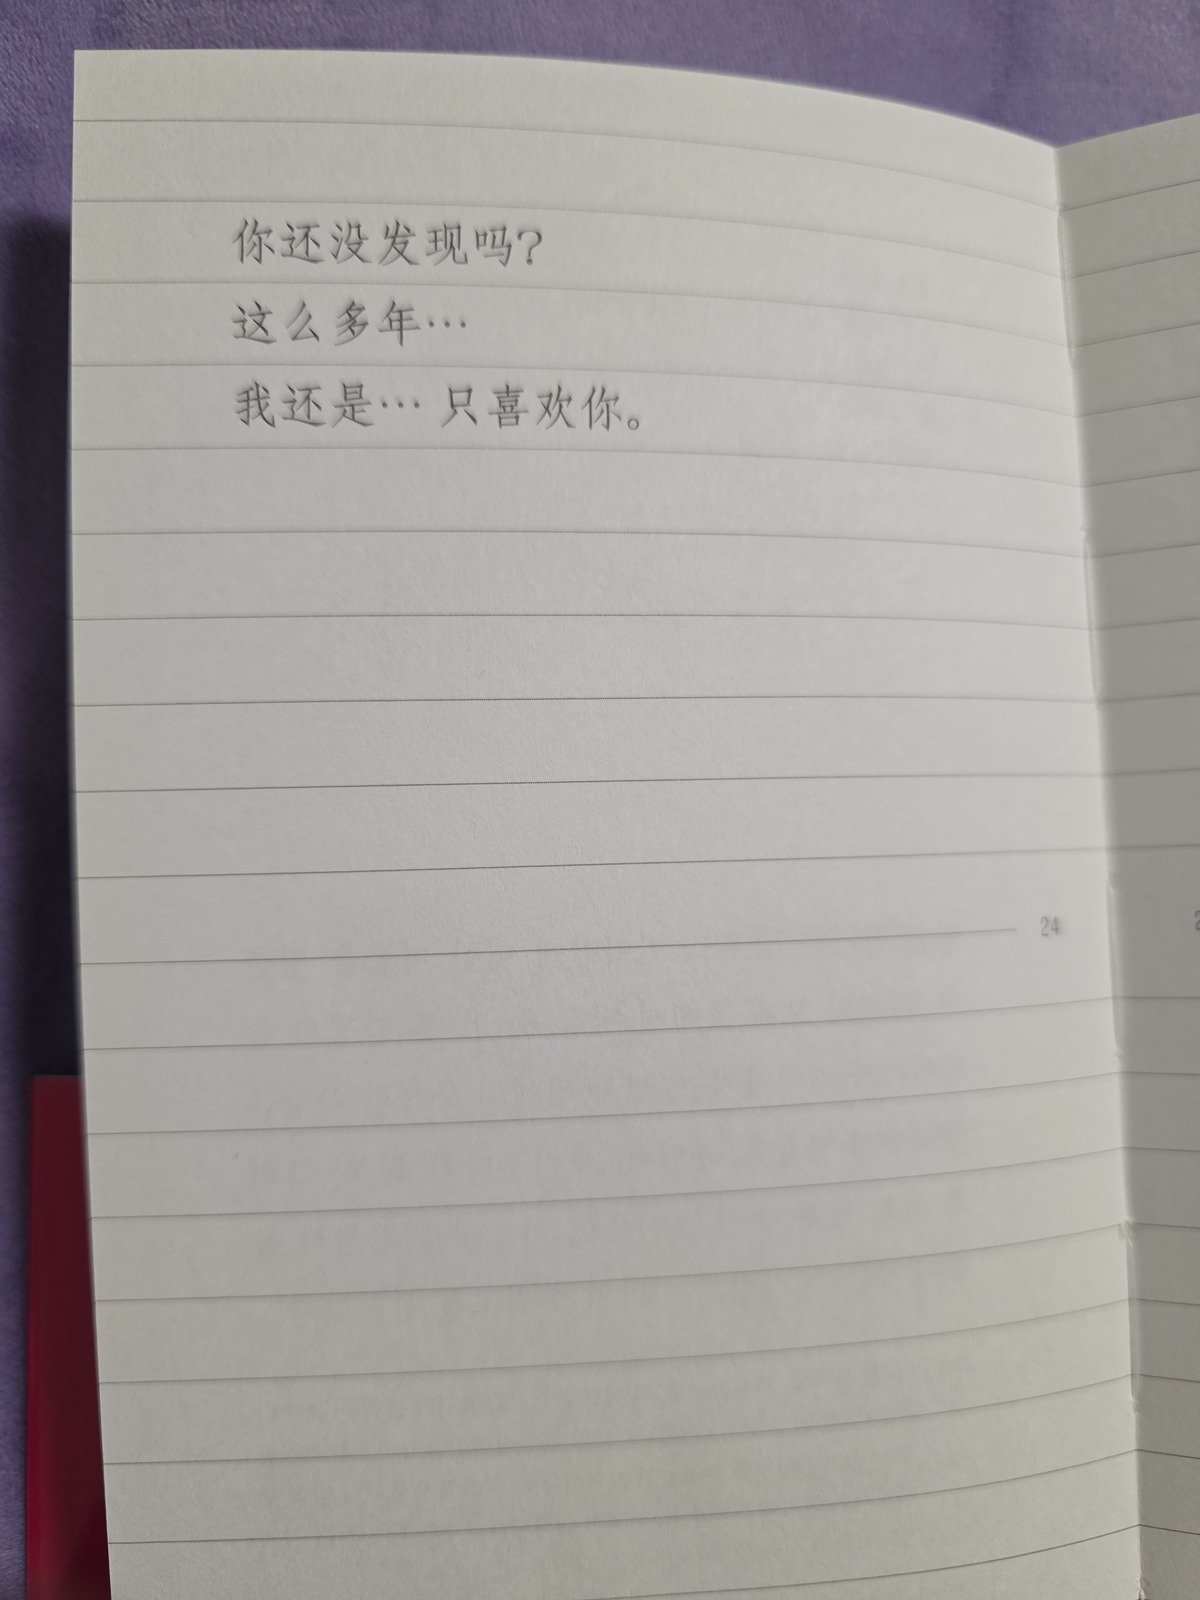 你还没发现吗？
这么多年…
我还是… 只喜欢你。
24